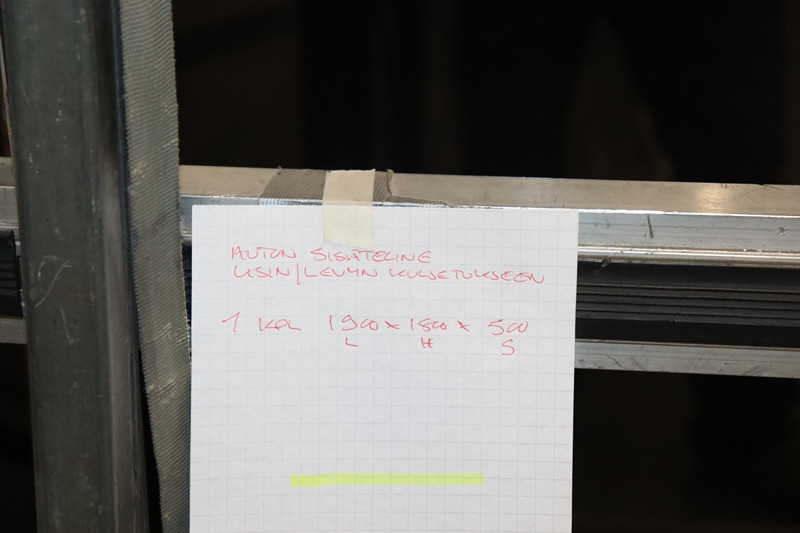 AUTON SISÄTELINE
LASIN/LEVYN KULJETUKSEEN
1 KPL 1900 x 1800 x 500
L H S